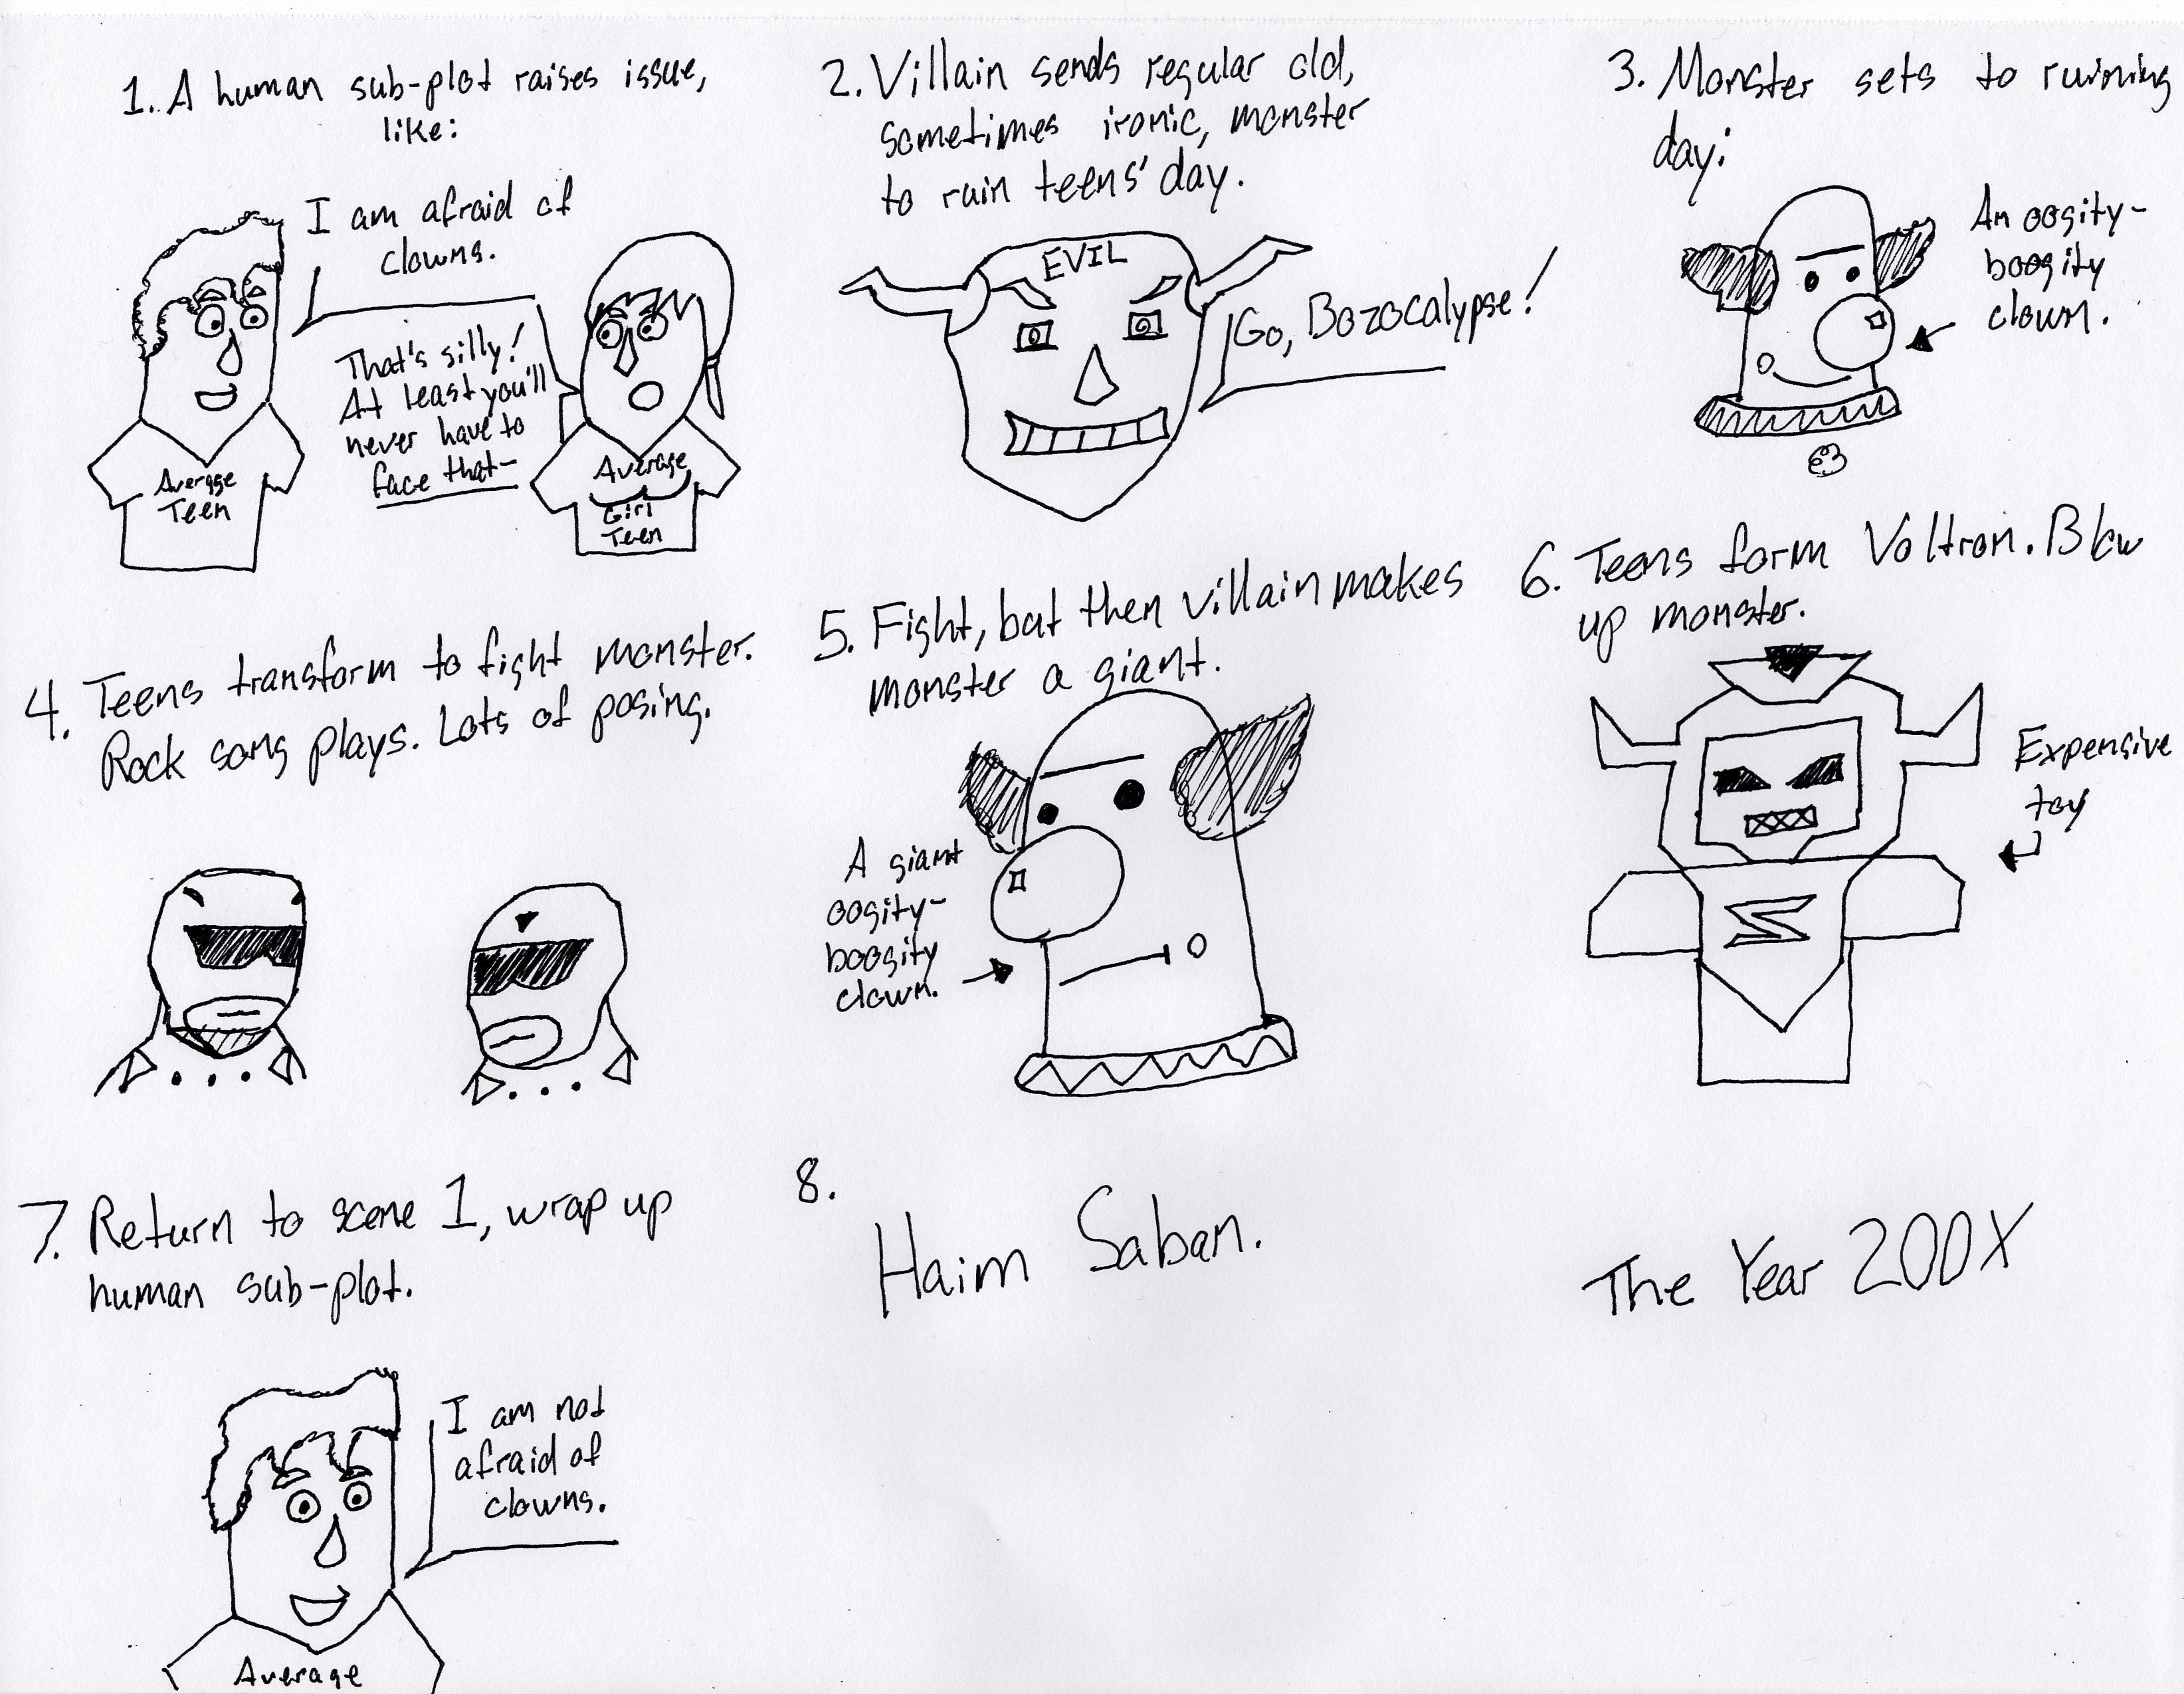 1. A human sub-plot raises issue,
like:
I am afraid of
clowns.
That's silly!
At least you'll
never have to
face that-
Average
Teen
Average
Girl
Teen
2. Villain sends regular old,
sometimes ironic, monster
to ruin teens' day.
EVIL
Go, Bozocalypse!
3. Monster sets to ruining
day:
An oogity-
boogity
clown.
4. Teens transform to fight monster.
Rock song plays. Lots of posing.
5. Fight, but then villain makes
monster a giant.
A giant
oogity-
boogity
clown.
6. Teens form Voltron. Blow
up monster.
Expensive
toy
7. Return to scene 1, wrap up
human sub-plot.
I am not
afraid of
clowns.
Average
8.
Haim Saban.
The Year 200X